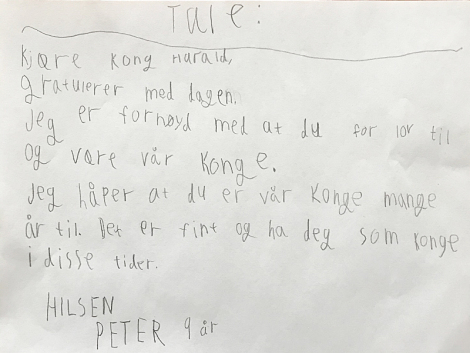 Tale:
Kjære Kong Harald,
gratulerer med dagen.
Jeg er fornøyd med at du for lov til
og være vår Konge.
Jeg håper at du er vår Konge mange
år til. Det er fint og ha deg som Konge
i disse tider.
HILSEN
PETER 9 år